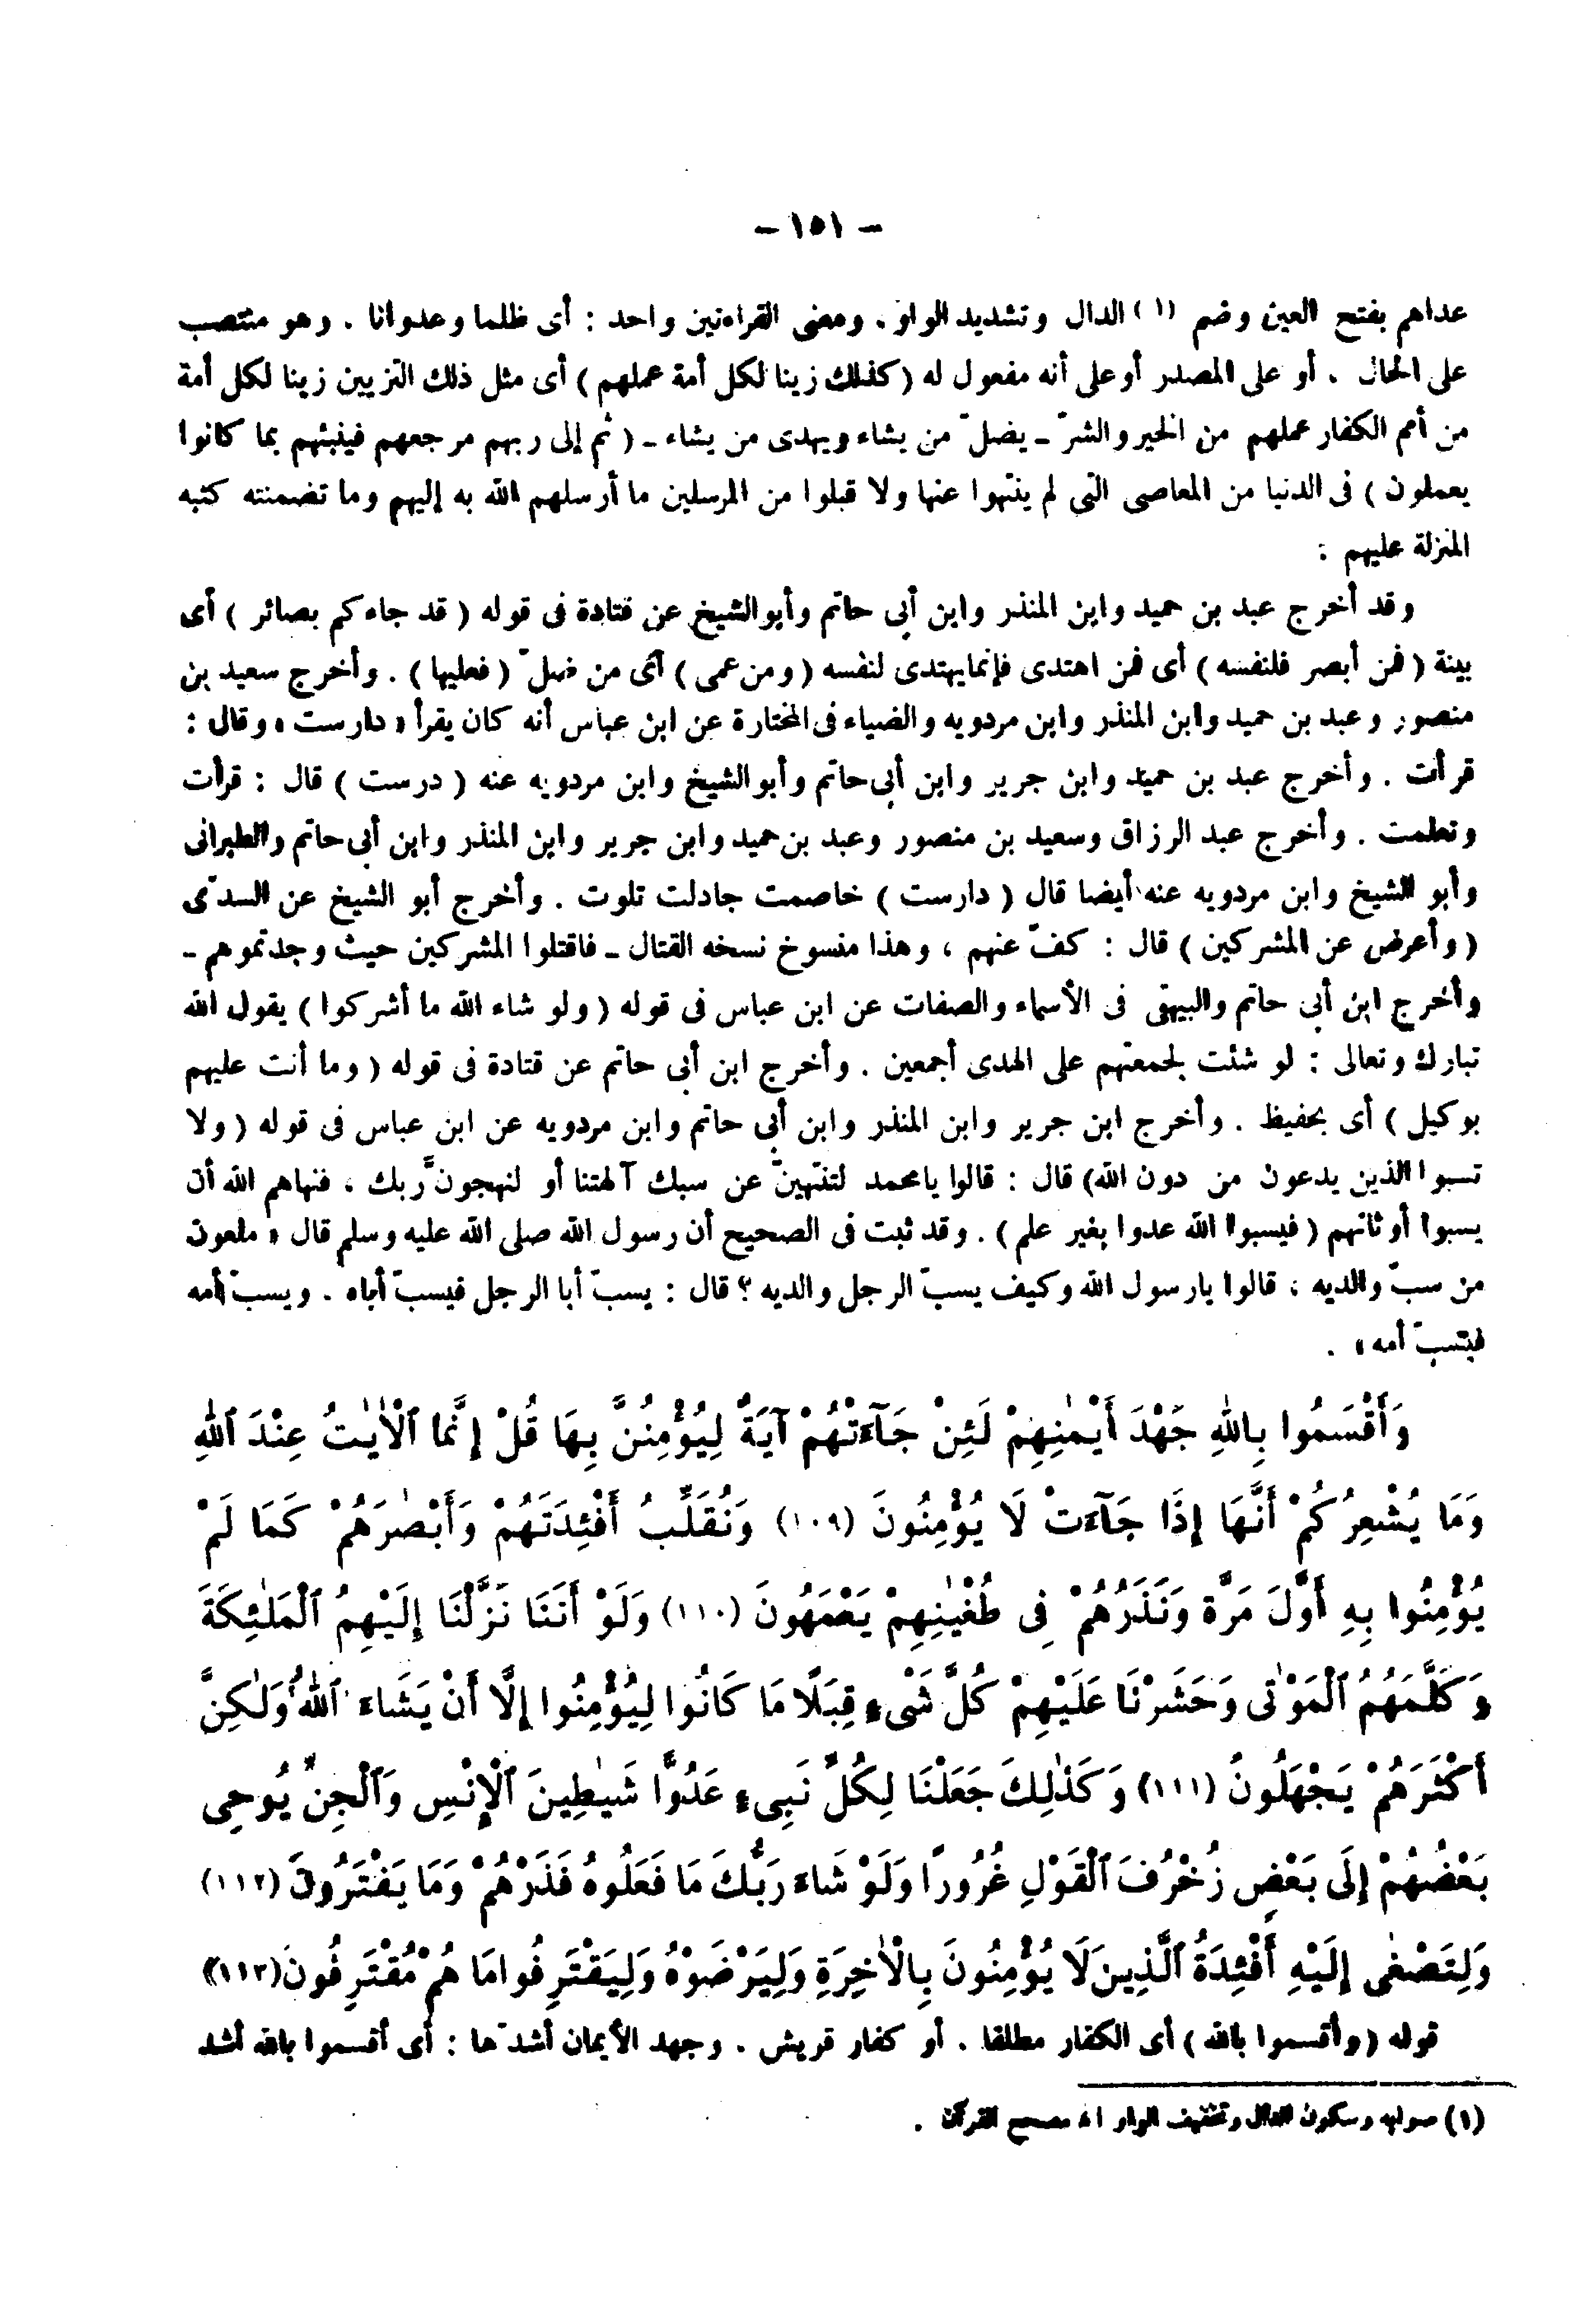 - ١٥١ -
عداهم بفتح العين وضم (١) الدال وتشديد الواو . ومعنى القراءتين واحد : أى ظلما وعدوانا . وهو منتصب
على الحال . أو على المصدر أوعلى أنه مفعول له ( كذلك زينا لكل أمة عملهم ) أى مثل ذلك التزيين زينا لكل أمة
من أمم الكفار عملهم من الخير والشرّ ـ يضلّ من يشاء ويهدى من يشاء ـ ( ثم إلى ربهم مرجعهم فينبئهم بما كانوا
يعملون ) فى الدنيا من المعاصى التى لم ينتهوا عنها ولا قبلوا من المرسلين ما أرسلهم الله به إليهم وما تضمنته كتبه
المنزلة عليهم :
وقد أخرج عبد بن حميد وابن المنذر وابن أبى حاتم وأبوالشيخ عن قتادة فى قوله ( قد جاءكم بصائر ) أى
بينة ( فمن أبصر فلنفسه ) أى فمن اهتدى فإنمايهتدى لنفسه ( ومن عمى ) أى من ضلّ ( فعليها ) . وأخرج سعيد بن
منصور وعبد بن حميد وابن المنذر وابن مردويه والضياء فى المختارة عن ابن عباس أنه كان يقرأ « دارست » وقال :
قرأت . وأخرج عبد بن حميد وابن جرير وابن أبى حاتم وأبوالشيخ وابن مردويه عنه ( درست ) قال : قرأت
وتعلمت . وأخرج عبد الرزاق وسعيد بن منصور وعبد بن حميد وابن جرير وابن المنذر وابن أبى حاتم والطبرانى
وأبو الشيخ وابن مردويه عنه أيضا قال ( دارست ) خاصمت جادلت تلوت . وأخرج أبو الشيخ عن السدّى
( وأعرض عن المشركين ) قال : كفّ عنهم ، وهذا منسوخ نسخه القتال ـ فاقتلوا المشركين حيث وجدتموهم ـ
وأخرج ابن أبى حاتم والبيهقى فى الأسماء والصفات عن ابن عباس فى قوله ( ولو شاء الله ما أشركوا ) يقول الله
تبارك وتعالى : لو شئت لجمعتهم على الهدى أجمعين . وأخرج ابن أبى حاتم عن قتادة فى قوله ( وما أنت عليهم
بوكيل ) أى بحفيظ . وأخرج ابن جرير وابن المنذر وابن أبى حاتم وابن مردويه عن ابن عباس فى قوله ( ولا
تسبوا الذين يدعون من دون الله) قال : قالوا يامحمد لتنتهينّ عن سبك آلهتنا أو لنهجونّ ربك ، فنهاهم الله أن
يسبوا أوثانهم ( فيسبوا الله عدوا بغير علم ) . وقد ثبت فى الصحيح أن رسول الله صلى الله عليه وسلم قال « ملعون
من سبّ والديه ، قالوا يارسول الله وكيف يسبّ الرجل والديه ؟ قال : يسبّ أبا الرجل فيسبّ أباه . ويسبّ أمه
فيسبّ أمه » .
وَأَقْسَمُوا بِاللهِ جَهْدَ أَيْمٰنِهِمْ لَئِنْ جَآءَتْهُمْ آيَةٌ لِيُؤْمِنُنَّ بِهَا قُلْ إِنَّمَا ٱلْأَيٰتُ عِنْدَ ٱللهِ
وَمَا يُشْعِرُكُمْ أَنَّهَا إِذَا جَآءَتْ لَا يُؤْمِنُونَ (١٠٩) وَنُقَلِّبُ أَفْئِدَتَهُمْ وَأَبْصٰرَهُمْ كَمَا لَمْ
يُؤْمِنُوا بِهِ أَوَّلَ مَرَّةٍ وَنَذَرُهُمْ فِى طُغْيٰنِهِمْ يَعْمَهُونَ (١١٠) وَلَوْ أَنَنَا نَزَّلْنَا إِلَيْهِمُ ٱلْمَلٰئِكَةَ
وَكَلَّمَهُمُ ٱلْمَوْتٰى وَحَشَرْنَا عَلَيْهِمْ كُلَّ شَىْءٍ قِبَلًا مَا كَانُوا لِيُؤْمِنُوا إِلَّا أَنْ يَشَاءَ ٱللهُ وَلٰكِنَّ
أَكْثَرَهُمْ يَجْهَلُونَ (١١١) وَكَذٰلِكَ جَعَلْنَا لِكُلِّ نَبِىءٍ عَدُوًّا شَيٰطِينَ ٱلْإِنْسِ وَٱلْجِنِّ يُوحِى
بَعْضُهُمْ إِلَى بَعْضٍ زُخْرُفَ ٱلْقَوْلِ غُرُورًا وَلَوْ شَاءَ رَبُّكَ مَا فَعَلُوهُ فَذَرْهُمْ وَمَا يَفْتَرُونَ (١١٢)
وَلِتَصْغٰى إِلَيْهِ أَفْئِدَةُ ٱلَّذِينَ لَا يُؤْمِنُونَ بِالْأٰخِرَةِ وَلِيَرْضَوْهُ وَلِيَقْتَرِفُوا مَا هُمْ مُقْتَرِفُونَ (١١٣)
قوله ( وأقسموا بالله ) أى الكفار مطلقا . أو كفار قريش . وجهد الأيمان أشدّها : أى أقسموا بالله أشد
(١) صوابه وسكون الدال وتخفيف الواو اه مصحح القرآن .